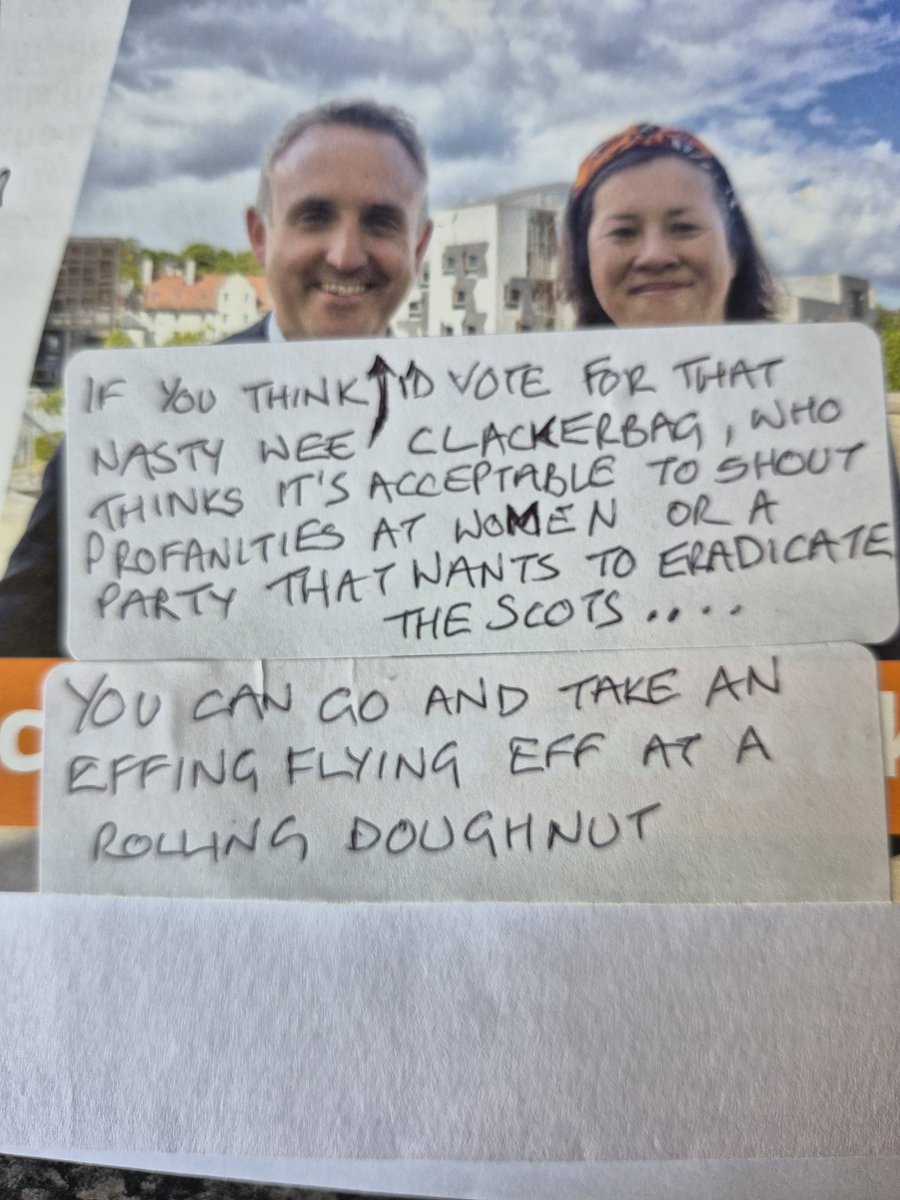 IF YOU THINK I'D VOTE FOR THAT
NASTY WEE CLACKERBAG, WHO
THINKS IT'S ACCEPTABLE TO SHOUT
PROFANITIES AT WOMEN OR A
PARTY THAT WANTS TO ERADICATE
THE SCOTS....
YOU CAN GO AND TAKE AN
EFFING FLYING EFF AT A
ROLLING DOUGHNUT